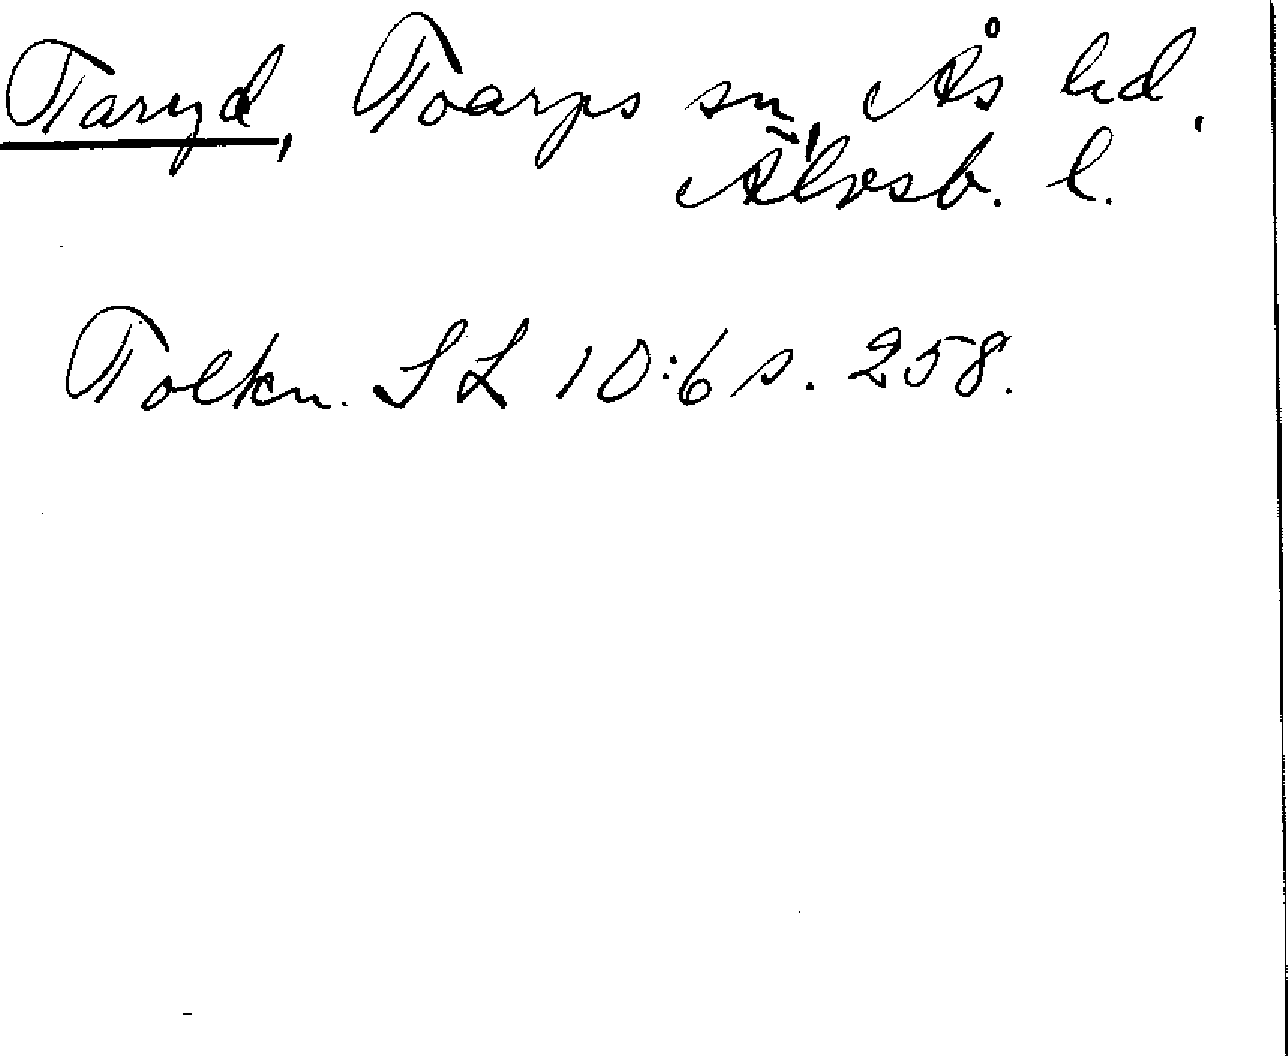 Taryd, Toarps sn, Ås hd,
Älvsb. l.
Tolkn. SL 10:6 s. 258.